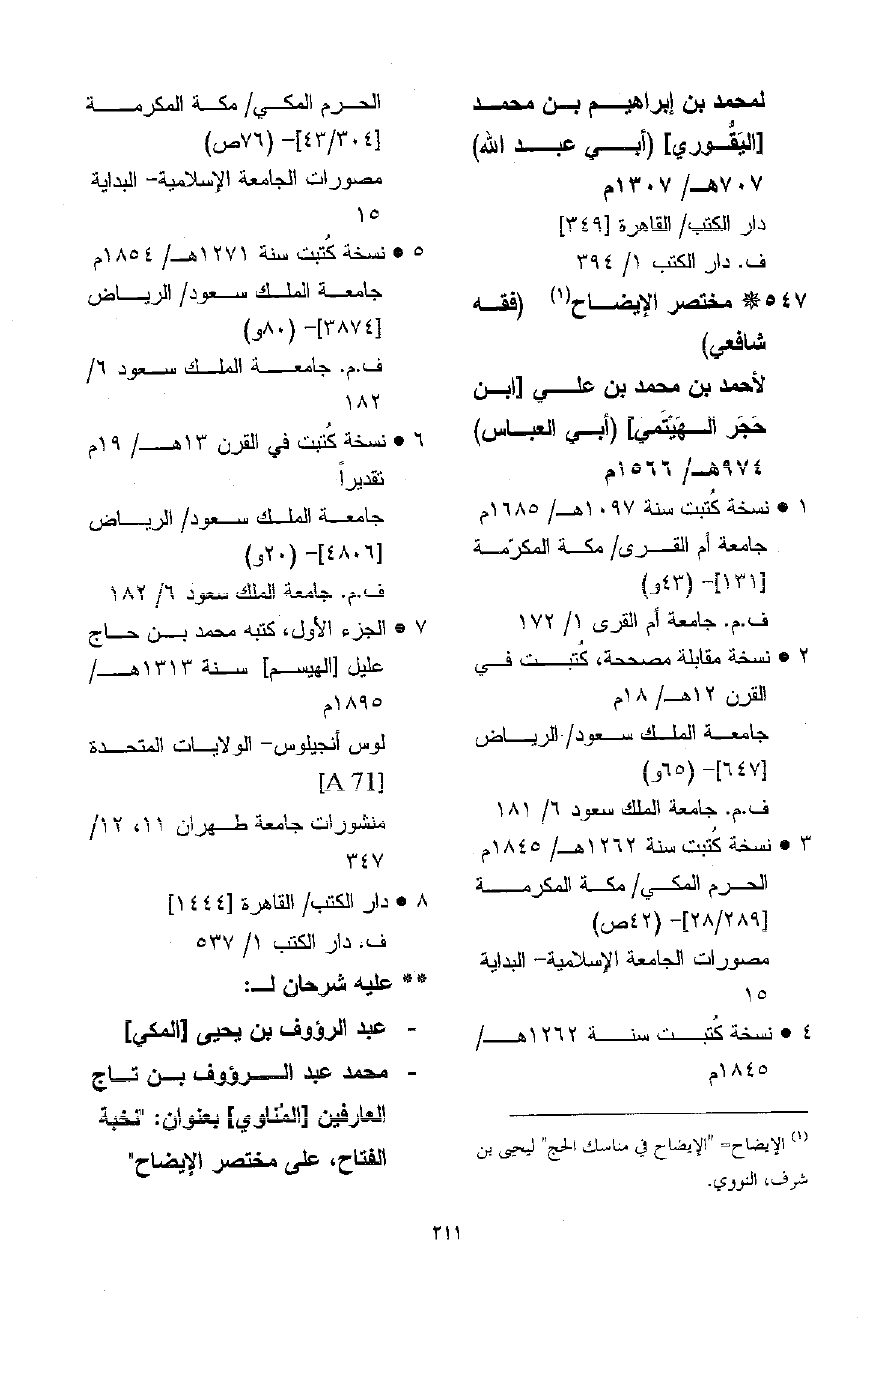 لمحمد بن إبراهيم بن محمد
[اليَقُّوري] (أبي عبد الله)
٧٠٧هـ/ ١٣٠٧م
دار الكتب/ القاهرة [٣٤٩]
ف. دار الكتب ١/ ٣٩٤
٥٤٧* مختصر الإيضاح(١) (فقه
شافعي)
لأحمد بن محمد بن علي [ابن
حَجَر الهَيْتَمي] (أبي العباس)
٩٧٤هـ/ ١٥٦٦م
١ • نسخة كُتبت سنة ١٠٩٧هـ/ ١٦٨٥م
جامعة أم القرى/ مكة المكرّمة
[١٣١]- (٤٣و)
ف.م. جامعة أم القرى ١/ ١٧٢
٢ • نسخة مقابلة مصححة، كُتبت في
القرن ١٢هـ/ ١٨م
جامعة الملك سعود/ الرياض
[٦٤٧]- (٦٥و)
ف.م. جامعة الملك سعود ٦/ ١٨١
٣ • نسخة كُتبت سنة ١٢٦٢هـ/ ١٨٤٥م
الحرم المكي/ مكة المكرمة
[٢٨/٢٨٩]- (٤٢ص)
مصورات الجامعة الإسلامية- البداية
١٥
٤ • نسخة كُتبت سنة ١٢٦٢هـ/
١٨٤٥م
(١) الإيضاح= "الإيضاح في مناسك الحج" ليحيى بن
شرف، النووي.
الحرم المكي/ مكة المكرمة
[٤٣/٣٠٤]- (٧٦ص)
مصورات الجامعة الإسلامية- البداية
١٥
٥ • نسخة كُتبت سنة ١٢٧١هـ/ ١٨٥٤م
جامعة الملك سعود/ الرياض
[٣٨٧٤]- (٨٠و)
ف.م. جامعة الملك سعود ٦/
١٨٢
٦ • نسخة كُتبت في القرن ١٣هـ/ ١٩م
تقديراً
جامعة الملك سعود/ الرياض
[٤٨٠٦]- (٢٠و)
ف.م. جامعة الملك سعود ٦/ ١٨٢
٧ • الجزء الأول، كتبه محمد بن حاج
عليل [الهيسم] سنة ١٣١٣هـ/
١٨٩٥م
لوس أنجيلوس- الولايات المتحدة
[A 71]
منشورات جامعة طهران ١١، ١٢/
٣٤٧
٨ • دار الكتب/ القاهرة [١٤٤٤]
ف. دار الكتب ١/ ٥٣٧
** عليه شرحان لـ:
- عبد الرؤوف بن يحيى [المكي]
- محمد عبد الرؤوف بن تاج
العارفين [المُناوي] بعنوان: "نخبة
الفتاح، على مختصر الإيضاح"
٢١١